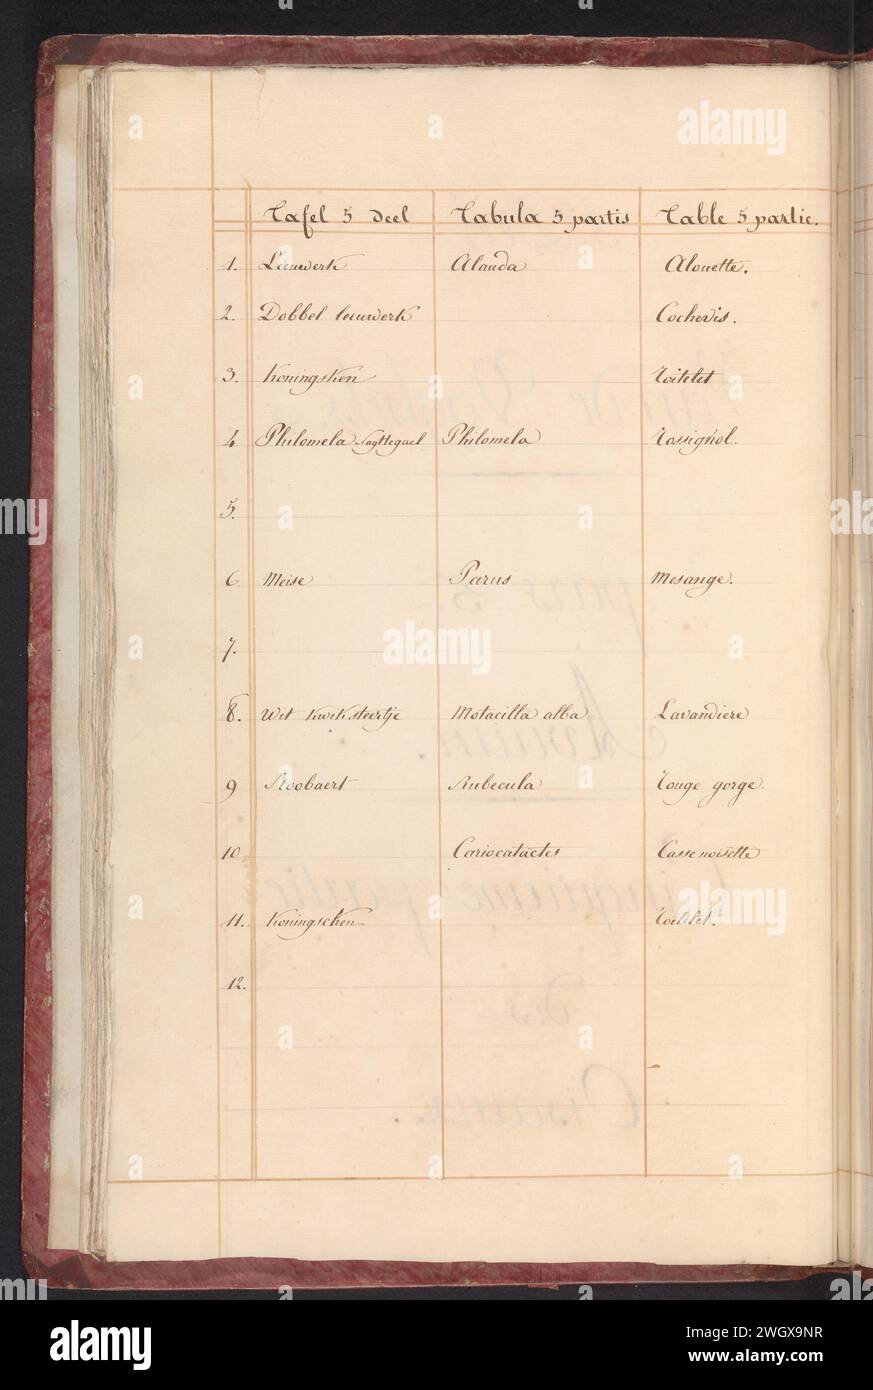 Tafel 5 deel Tabula 5 partis Table 5 partie.
1. Leeuwerk Alauda Alouette.
2. Dobbel leeuwerk Cochevis.
3. Koningsken Roitelet
4 Philomela Nagttegael Philomela Rossignol.
5.
6 Meise Parus Mesange.
7.
8. Wit kwiksteertje Motacilla alba Lavandiere
9 Roobaert Rubecula Rouge gorge.
10 Cariocatactes Casse noisette
11. Koningscken Roitelet.
12.
alamy
Image ID: 2WGX9NR
www.alamy.com